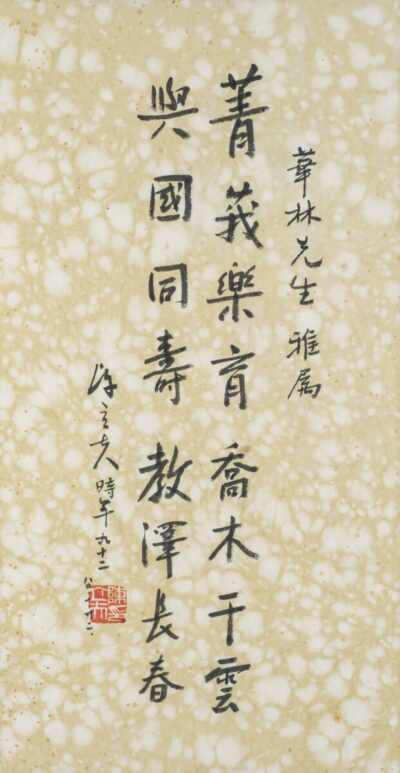 華林先生 雅屬
菁莪樂育喬木干雲
與國同壽教澤長春
陳立夫時年九十二